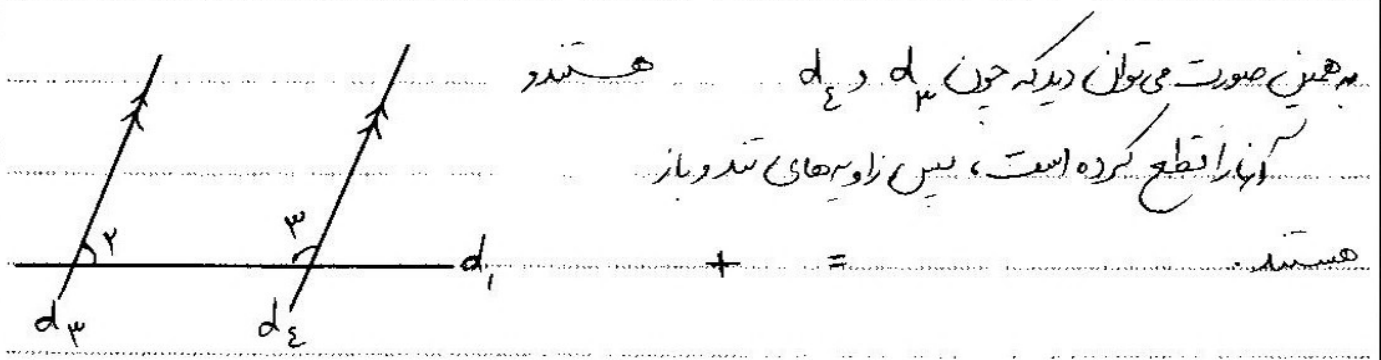 به همین صورت می‌توان دید که چون d۳ و d٤ هستند و
آنها را قطع کرده است، پس زاویه‌های تند و باز
هستند. = +
۲
۳
d۱
d۳
d٤